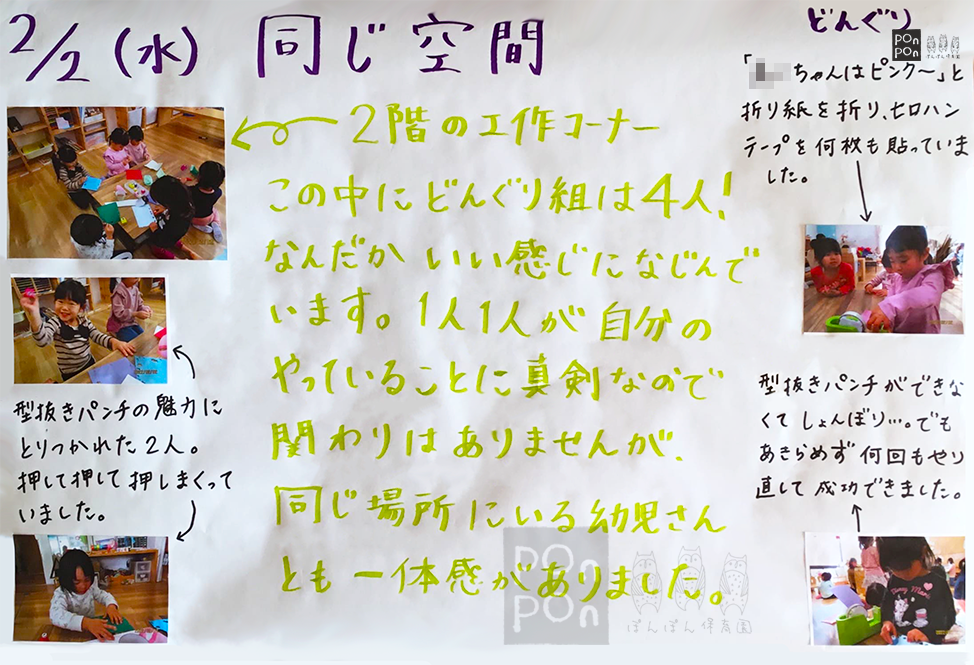 2/2 (水) 同じ空間
どんぐり
pon
pon
ぽんぽん保育園
2階の工作コーナー
この中にどんぐり組は4人!
なんだかいい感じになじんで
います。1人1人が自分の
やっていることに真剣なので
関わりはありませんが、
同じ場所にいる幼児さん
とも一体感がありました。
型抜きパンチの魅力に
とりつかれた2人。
押して押して押しまくって
いました。
「ちゃんはピンク〜」と
折り紙を折り、セロハン
テープを何枚も貼っていま
した。
型抜きパンチができな
くてしょんぼり…。でも
あきらめず何回もやり
直して成功できました。
pon
pon
ぽんぽん保育園